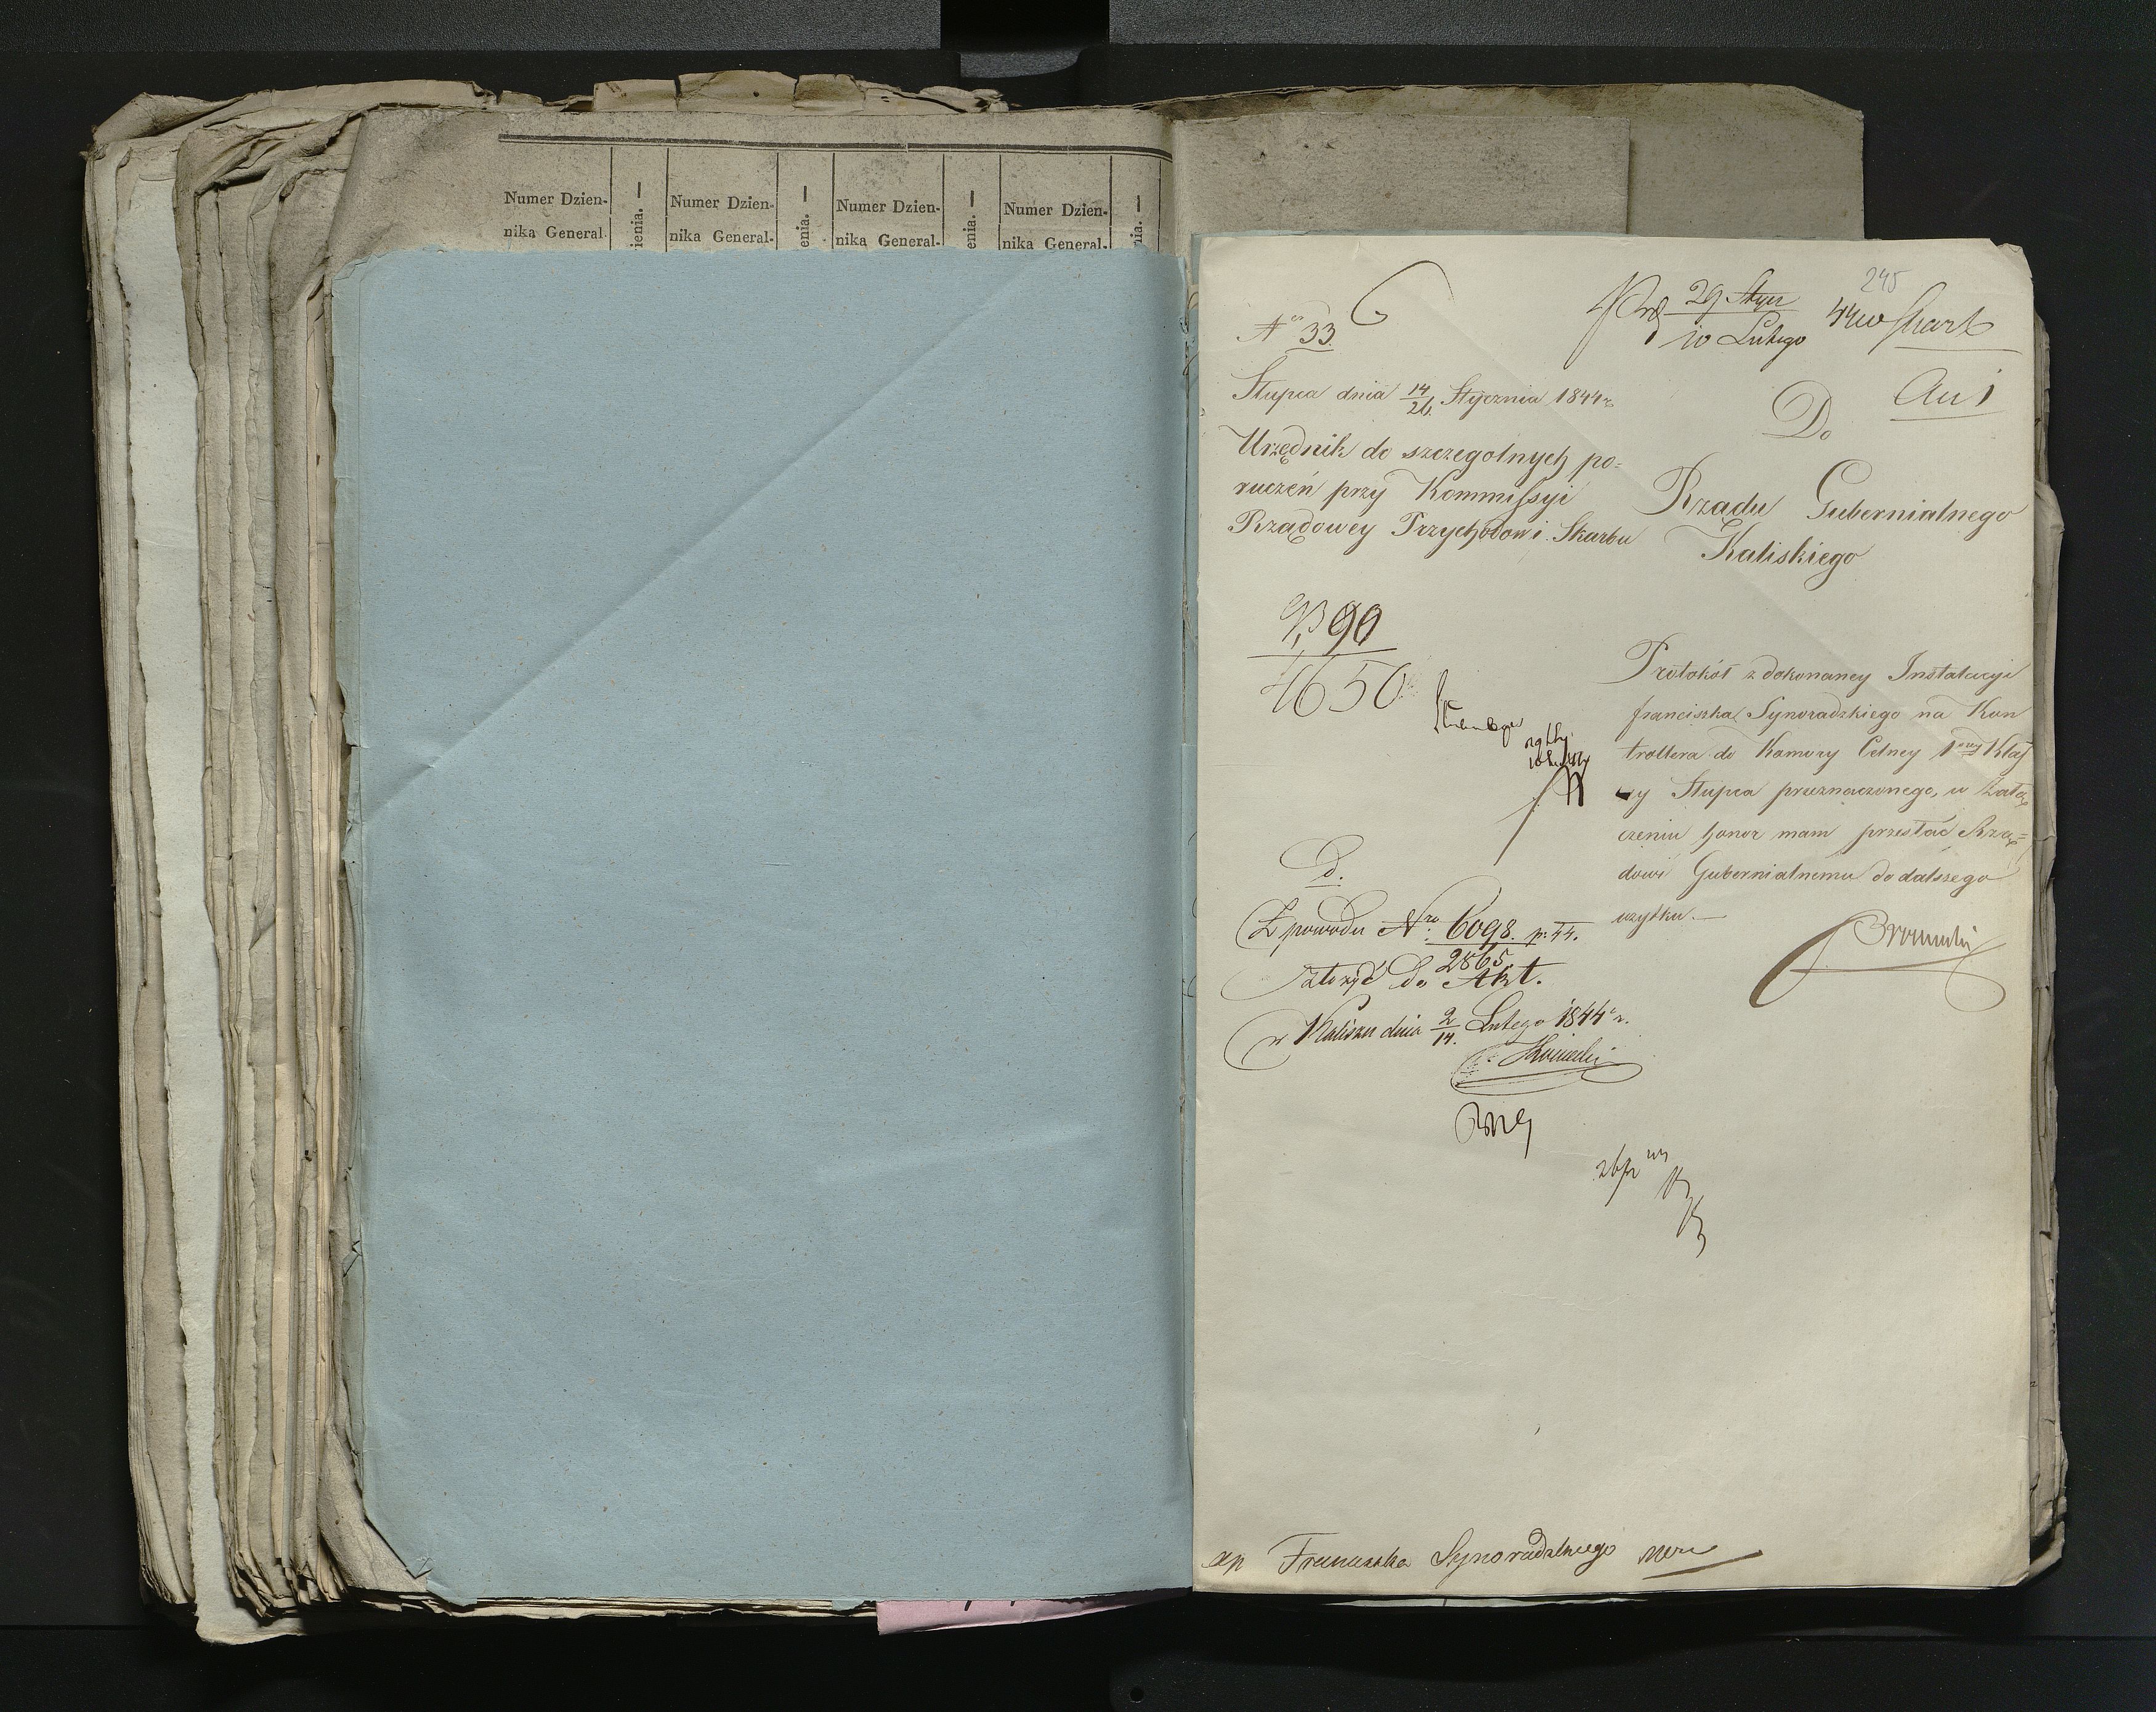 Numer Dzien-
nika General.
ienia. —
Numer Dzien-
nika General-
enia. —
Numer Dzien-
nika General-
enia. —
Numer Dzien-
nika General-
nia. —
245
29 Stycz
10 Lutego
No 33
Słupca dnia 14/26 Stycznia 1844 r
Urzędnik do szczegolnych po-
ruczeń przy Kommissyi
Rządowey Przychodow i Skarbu
Do
Rządu Gubernialnego
Kaliskiego
90
4650
Protokół z dokonaney Instalacyi
Franciszka Synoradzkiego na Kon
trollera do Komory Celney 1wszey Klas
sy Słupca przeznaczonego, w załą
czeniu honor mam przesłać Rzą-
dowi Gubernialnemu do dalszego
użytku.—
d.
Z powodu Nro 6098. p. 44.
2865.
złożyć do Akt.
w Kaliszu dnia 2/14. Lutego 1844 r.
ap Franciszka Synoradzkiego